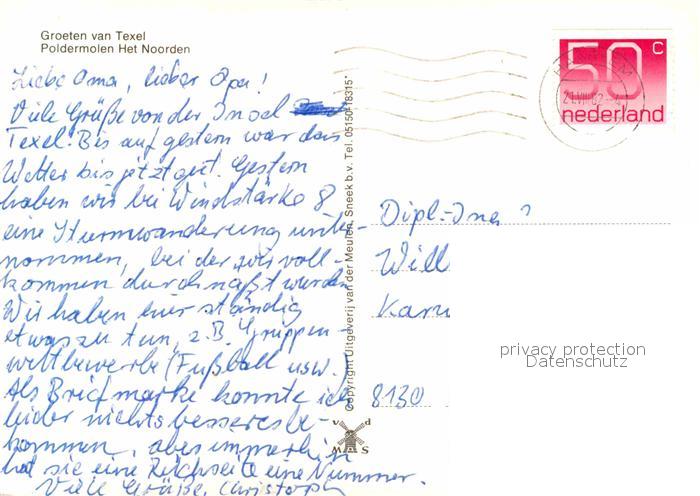 Groeten van Texel
Poldermolen Het Noorden
50 c
nederland
Liebe Oma, lieber Opa!
Viele Grüße von der Insel
Texel. Bis auf gestern war das
Wetter bis jetzt gut. Gestern
haben wir bei Windstärke 8
eine Sturmwanderung unter-
nommen, bei der wir voll-
kommen durchnäßt wurden
Wir haben hier ständig
etwas zu tun, z.B. Gruppen-
wettbewerbe (Fußball usw.
Als Briefmarke konnte ich
leider nichts besseres be-
kommen, aber immerhin
hat sie eine Zeichseite eine Nummer.
Viele Grüße, Christoph
Copyright Uitgeverij van der Meulen, Sneek b.v. Tel. 05150-18315*
v d
M S
Dipl.-Ing
Will
Karw
8130
privacy protection
Datenschutz